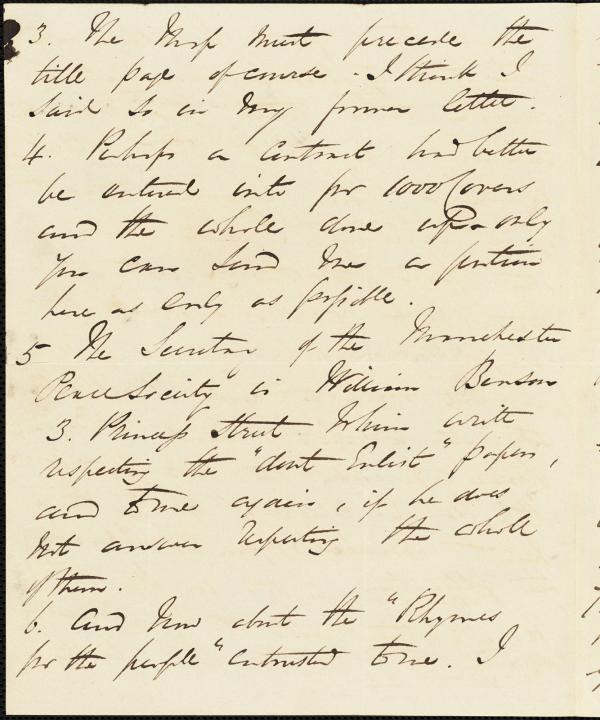 3. The Map must precede the
title page of course. I think I
said so in my former letter.
4. Perhaps a contract had better
be entered into for 1000 Covers
and the whole done up - only
you can send me a portion
here as early as possible.
5 The Secretary of the Manchester
Peace Society is William Benson
3. Princess Street whim write
respecting the "dont Enlist" papers,
and to me again, if he does
not answer respecting the whole
of them.
6. And now about the "Rhymes
for the people" entrusted to me. I